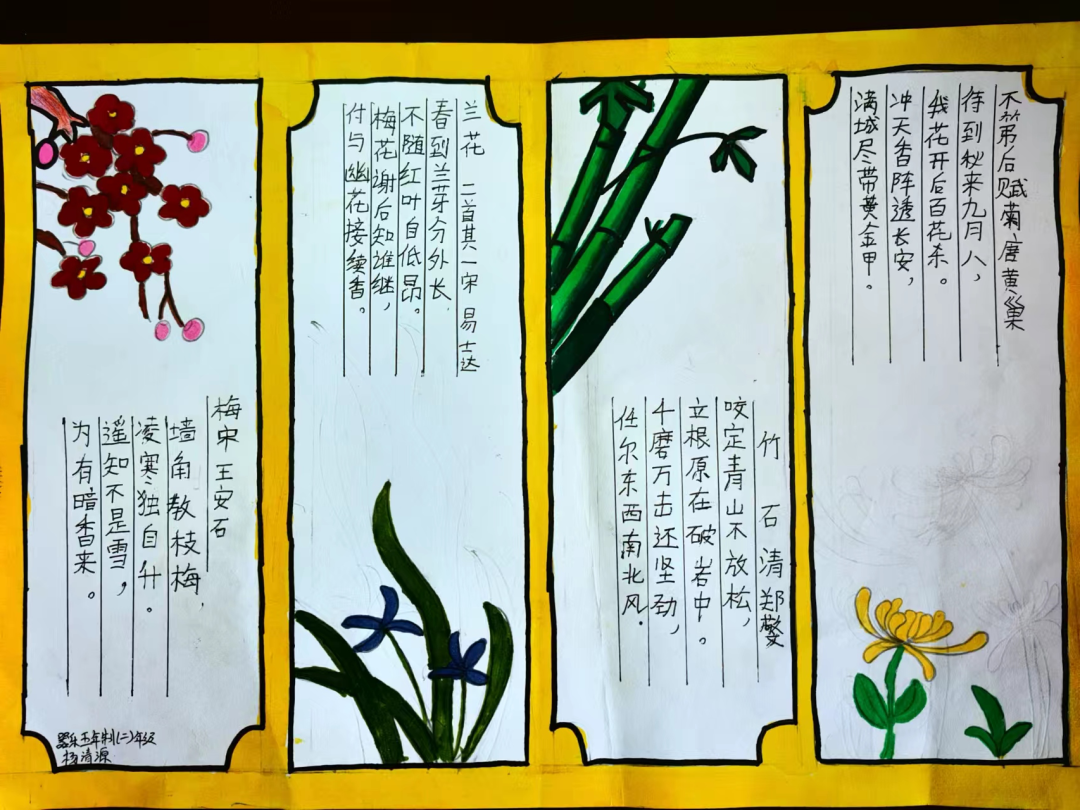 梅 宋 王安石
墙角数枝梅，
凌寒独自开。
遥知不是雪，
为有暗香来。
器乐五年制(二)年级
杨清源
兰花 二首其一 宋 易士达
春到兰芽分外长，
不随红叶自低昂。
梅花谢后知谁继，
付与幽花接续香。
竹石 清 郑燮
咬定青山不放松，
立根原在破岩中。
千磨万击还坚劲，
任尔东西南北风.
不第后赋菊 唐 黄巢
待到秋来九月八，
我花开后百花杀。
冲天香阵透长安，
满城尽带黄金甲。